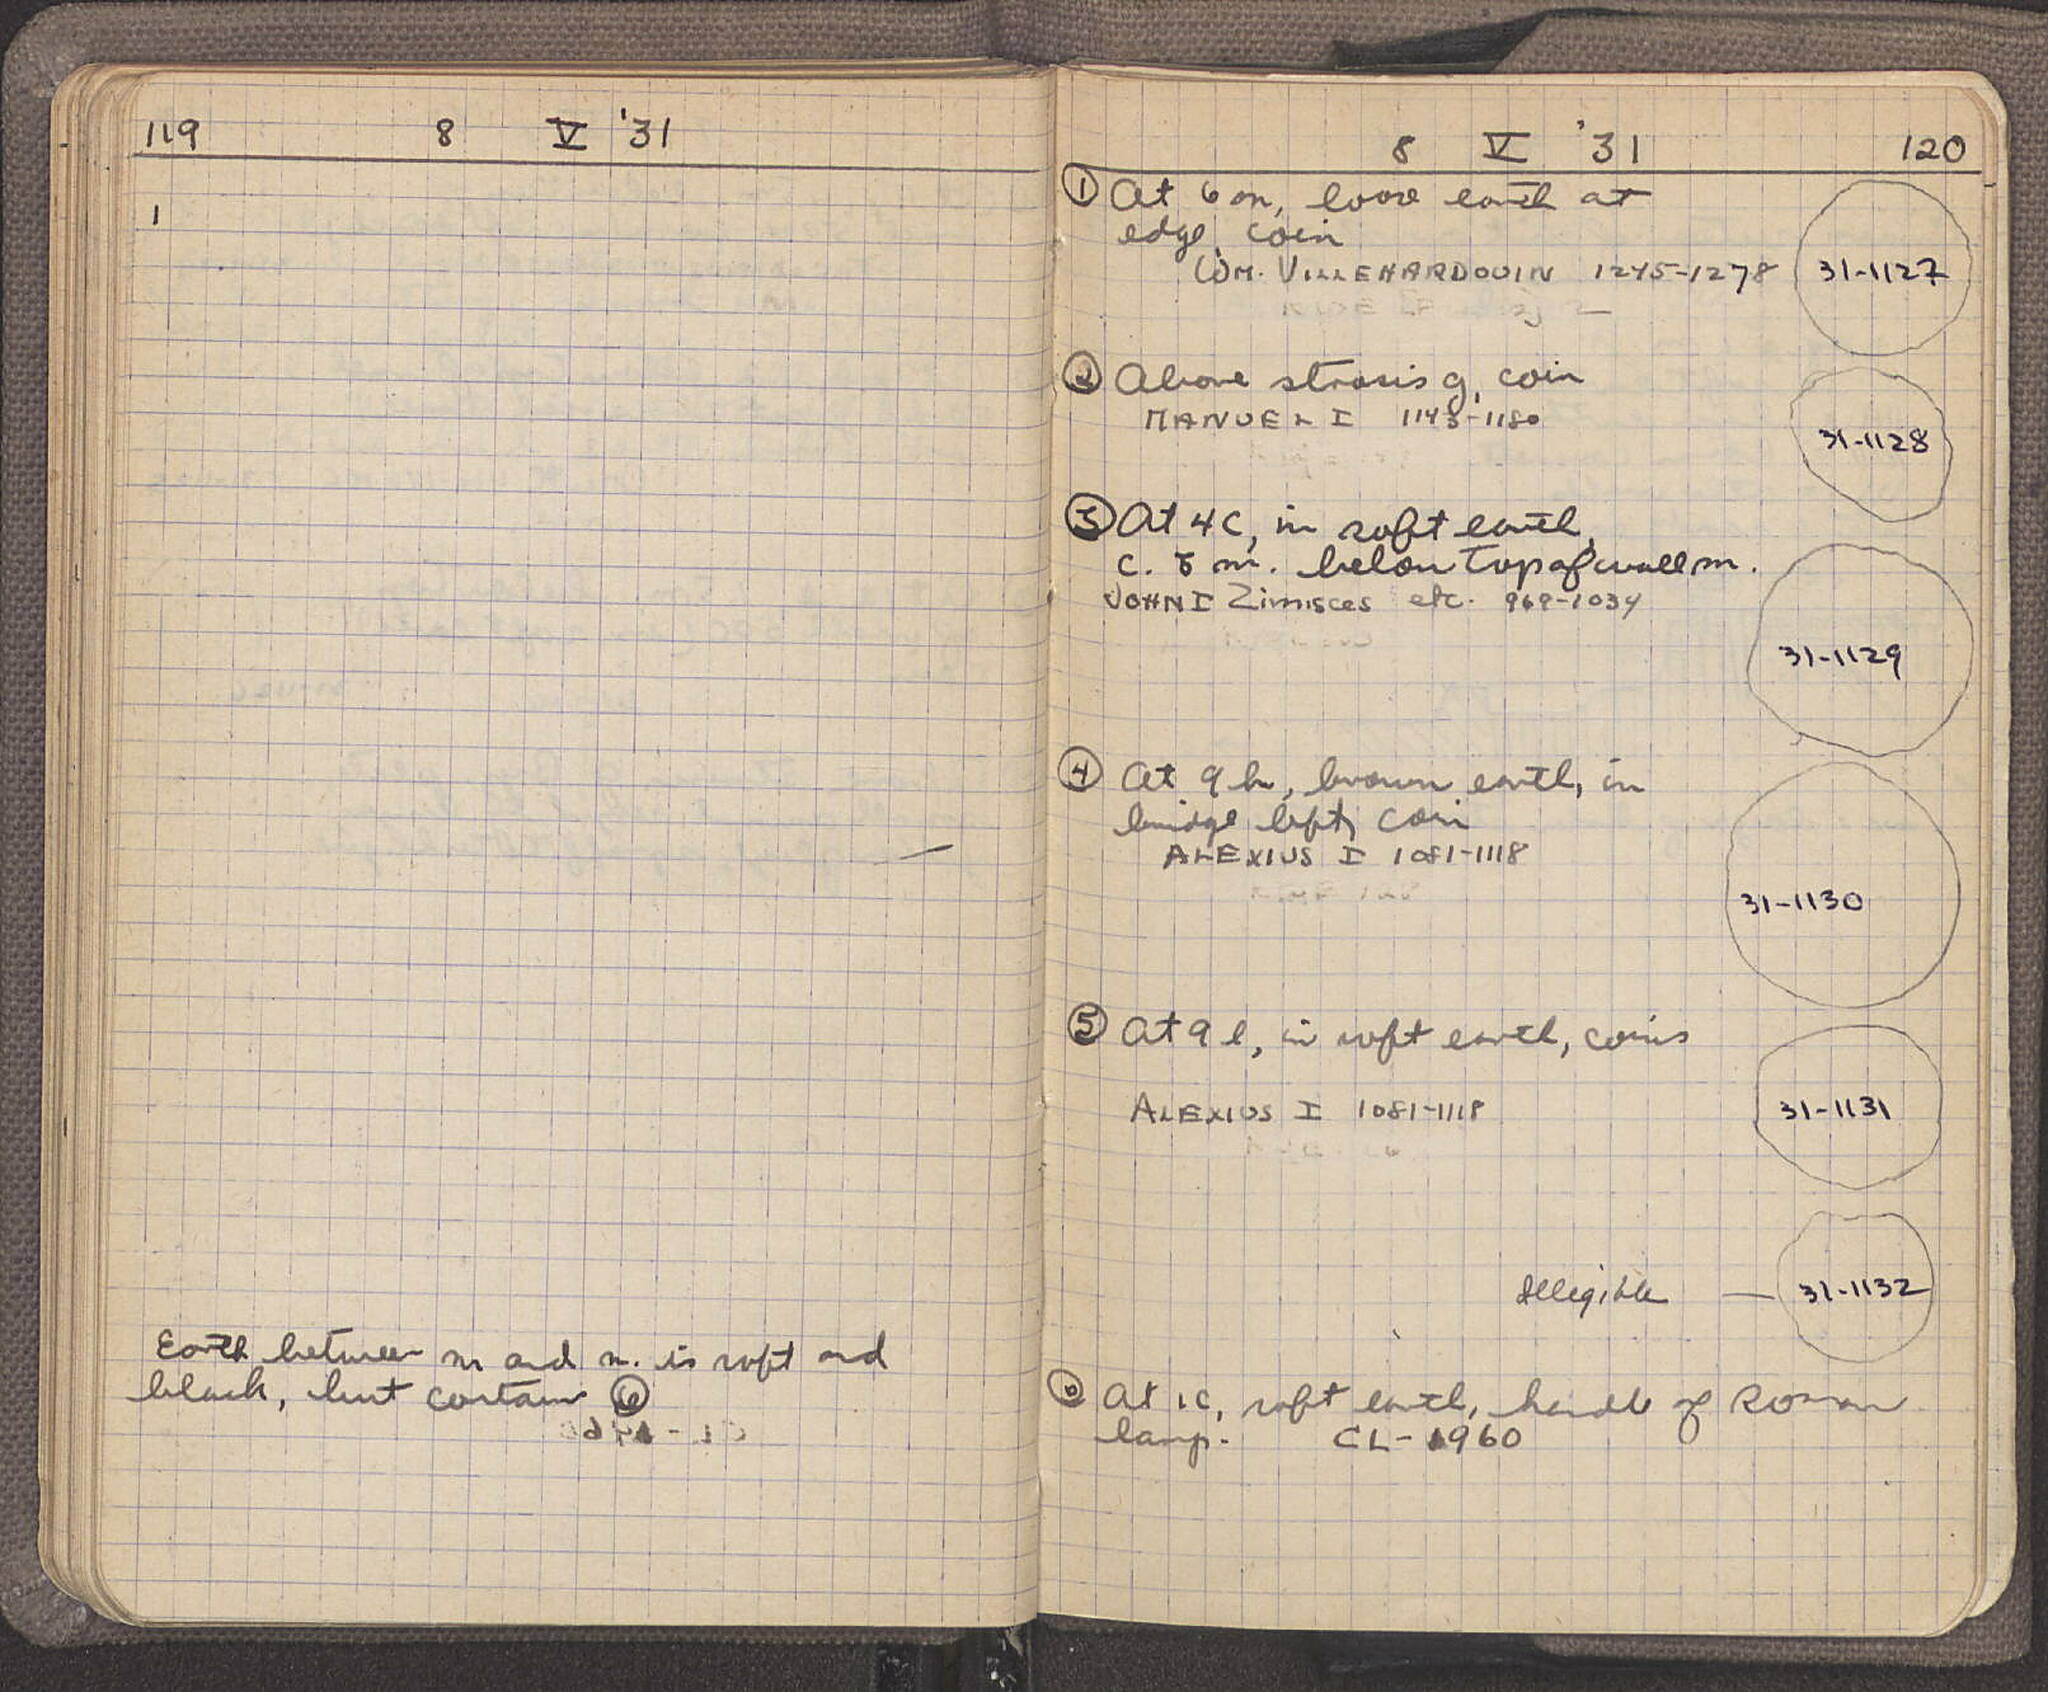 119 8 V '31
1
Earth between m and n. is soft and
black, but contains ⑥
8 V '31 120
① At 6 m, loose earth at
edge, coin
WM. VILLEHARDOUIN 1245-1278 31-1127
② Above strosis g, coin
MANUEL I 1143-1180
31-1128
③ At 4 C, in soft earth,
c. 5 m. below top of wall m.
JOHN I Zimisces etc. 969-1034
31-1129
④ At 9 h, brown earth, in
bridge left, coin
ALEXIUS I 1081-1118
31-1130
⑤ At 9 l, in soft earth, coins
ALEXIUS I 1081-1118 31-1131
Illegible — 31-1132
⑥ At 1C, soft earth, handle of Roman
lamp. CL-1960